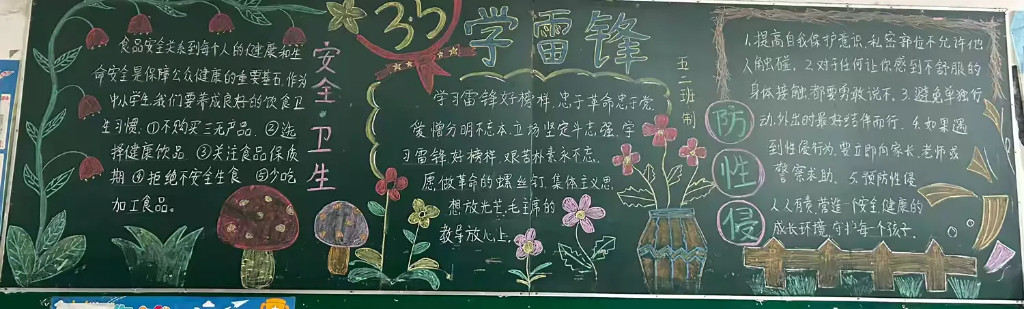 食品安全关系到每个人的健康和生
命安全是保障公众健康的重要基石,作为
中小学生,我们要养成良好的饮食卫
生习惯,①不购买三无产品,②选
择健康饮品。③关注食品保质
期④拒绝不安全生食⑤少吃
加工食品。
安全·卫生
3.5
学雷锋
五二班制
学习雷锋好榜样,忠于革命忠于党
爱憎分明不忘本立场坚定斗志强,学
习雷锋好榜样,艰苦朴素永不忘,
愿做革命的螺丝钉,集体主义思
想放光芒,毛主席的
教导放心上,
防性侵
1.提高自我保护意识,私密部位不允许他
人触碰。2.对于任何让你感到不舒服的
身体接触,都要勇敢说不。3.避免单独行
动,外出时最好结伴而行。4.如果遇
到性侵行为,要立即向家长、老师或
警察求助。5.预防性侵
人人有责,营造一个安全,健康的
成长环境,守护每个孩子。